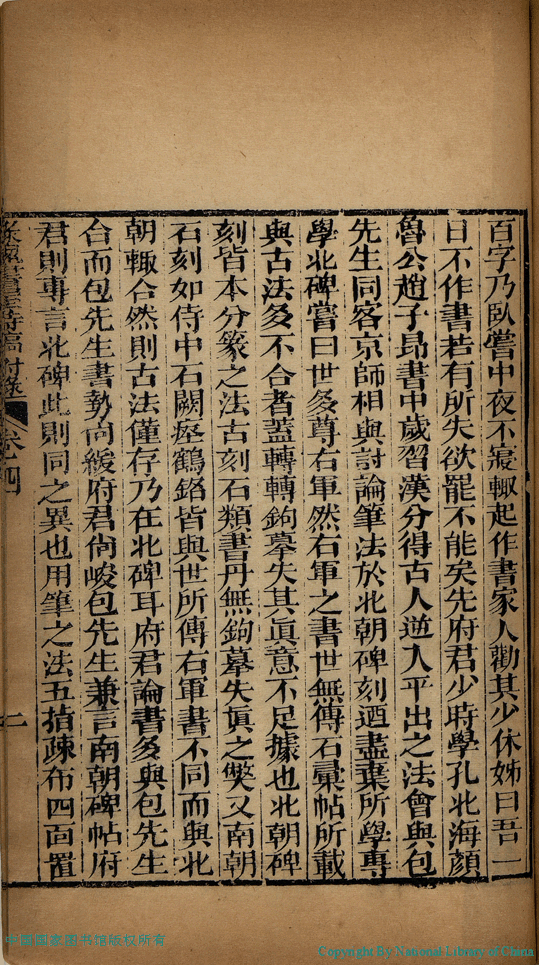 百字乃臥嘗中夜不寢輙起作書家人勸其少休姊曰吾一
日不作書若有所失欲罷不能矣先府君少時學孔北海顔
魯公趙子昂書中歲習漢分得古人逆入平出之法會與包
先生同客京師相與討論筆法於北朝碑刻迺盡棄所學專
學北碑嘗曰世多尊右軍然右軍之書世無傳石彙帖所載
與古法多不合者蓋轉轉鉤摹失其眞意不足據也北朝碑
刻皆本分篆之法古刻石類書丹無鉤摹失眞之獘又南朝
石刻如侍中石闕瘞鶴銘皆與世所傳右軍書不同而與北
朝輙合然則古法僅存乃在北碑耳府君論書多與包先生
合而包先生書勢尙緩府君尙峻包先生兼言南朝碑帖府
君則專言北碑此則同之異也用筆之法五指疎布四面置
附錄 卷四
二
中國國家图书馆版权所有
Copyright By National Library of China